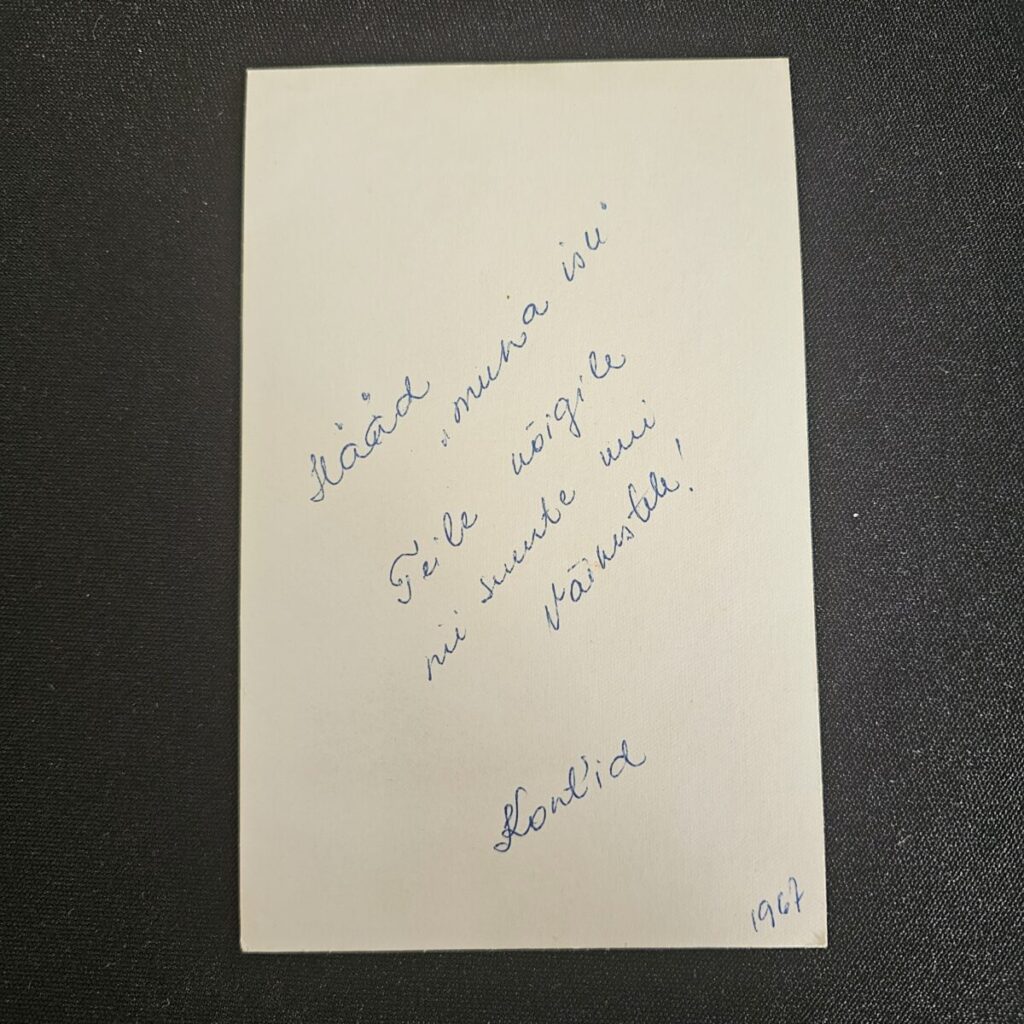 Hääd
„muna isu"
Teile kõigile
nii suurte kui
väikestele!
Kont'id
1967